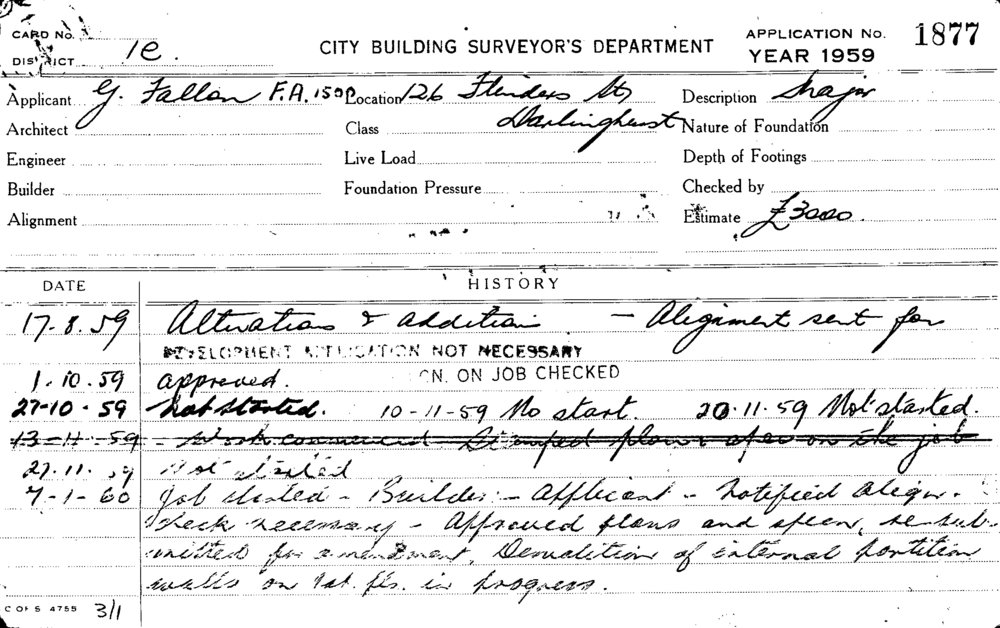 CARD No.
DISTRICT 1e.
CITY BUILDING SURVEYOR'S DEPARTMENT
APPLICATION No. 1877
YEAR 1959
Applicant G. Fallon F.A. 1500 Location 126 Flinders St, Description Major
Architect Class Darlinghurst Nature of Foundation
Engineer Live Load Depth of Footings
Builder Foundation Pressure Checked by
Alignment Estimate £3000.
DATE HISTORY
17.8.59 Alterations & addition — Alignment sent for
DEVELOPMENT APPLICATION NOT NECESSARY
1.10.59 approved. ON JOB CHECKED
27-10.59 Not started. 10-11-59 No start. 20.11.59 Not started.
13-11-59 - Work commenced Stamped plans & spec on the job
27.11.59 Not started
7-1-60 Job started - Builder:- Applicant - Notified align.
check necessary - Approved plans and specn, re-sub-
mitted for amendment, Demolition of internal partition
walls on 1st. flr. in progress.
C OF S 4755 3/1